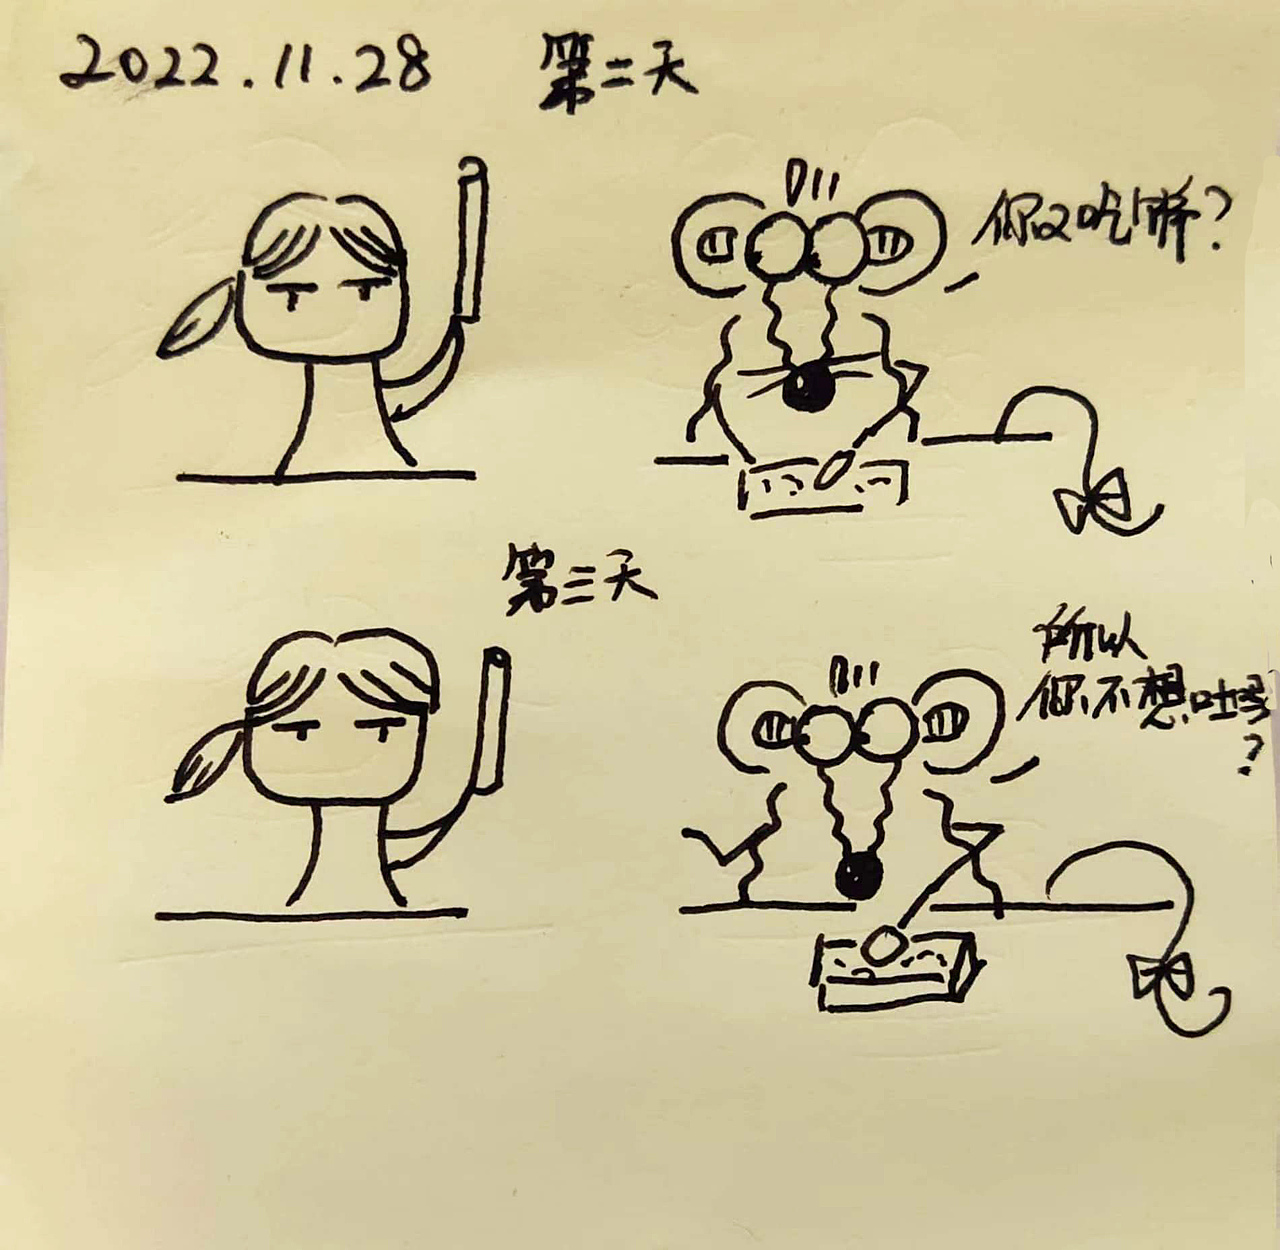 2022.11.28 第二天
你又吃饼?
第三天
所以
你不想吐吗
?